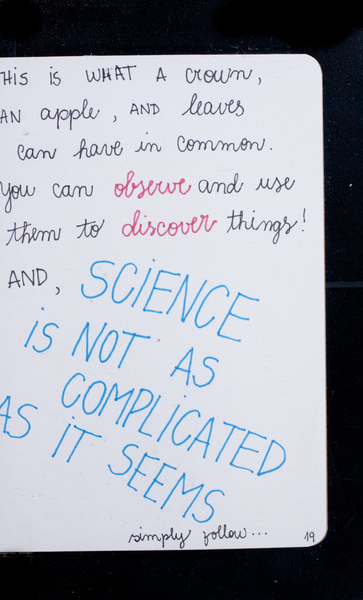 THiS iS WHAT A crown,
AN apple, AND leaves
can have in common.
You can observe and use
them to discover things!
AND, SCiENCE
iS NOT AS
COMPLiCATED
AS iT SEEMS
simply follow...
19